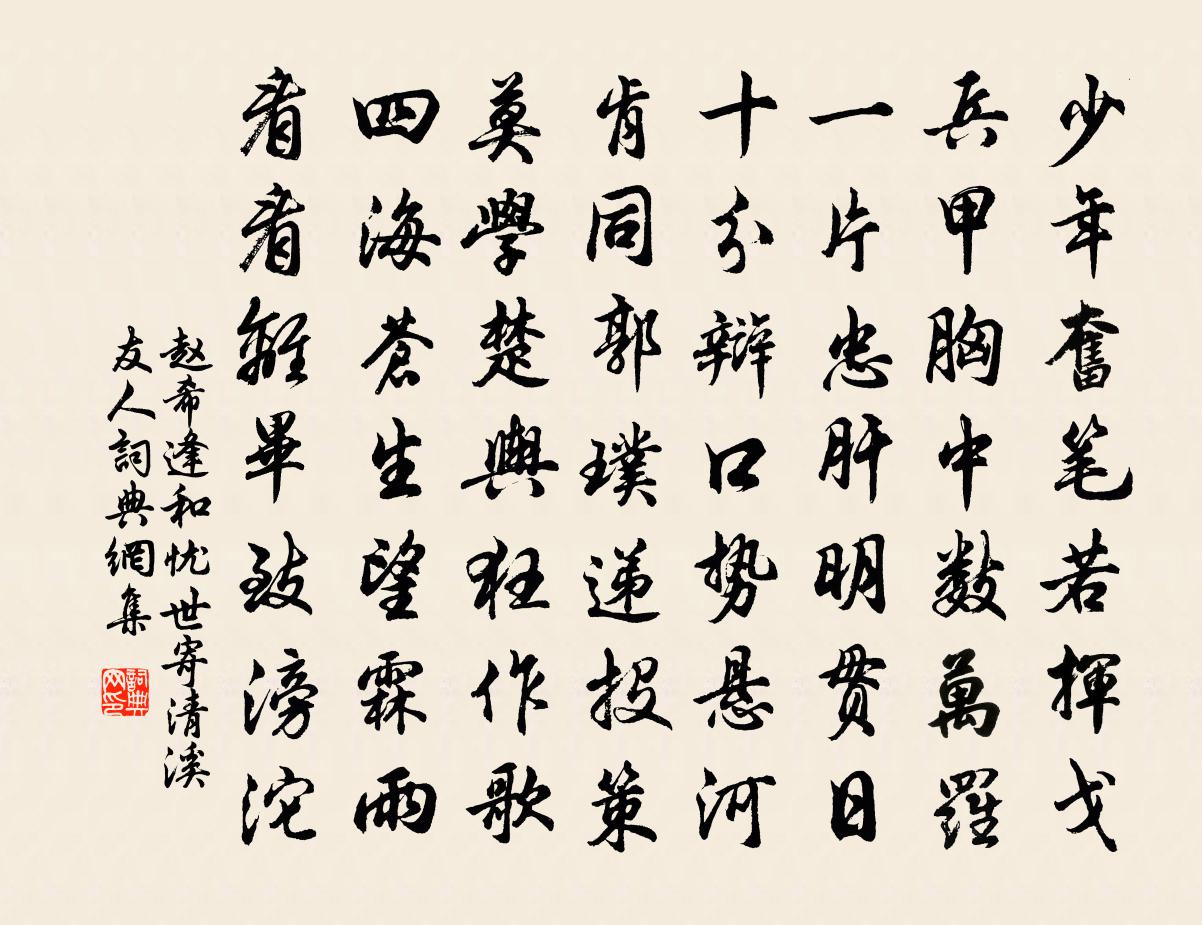 少年奮笔若揮戈
兵甲胸中数萬羅
一片忠肝明貫日
十分辯口势悬河
肯同郭璞递投策
莫學楚輿狂作歌
四海蒼生望霖雨
看看離畢致滂沱
赵希逢和忧世寄清溪
友人詞典網集
詞典网印